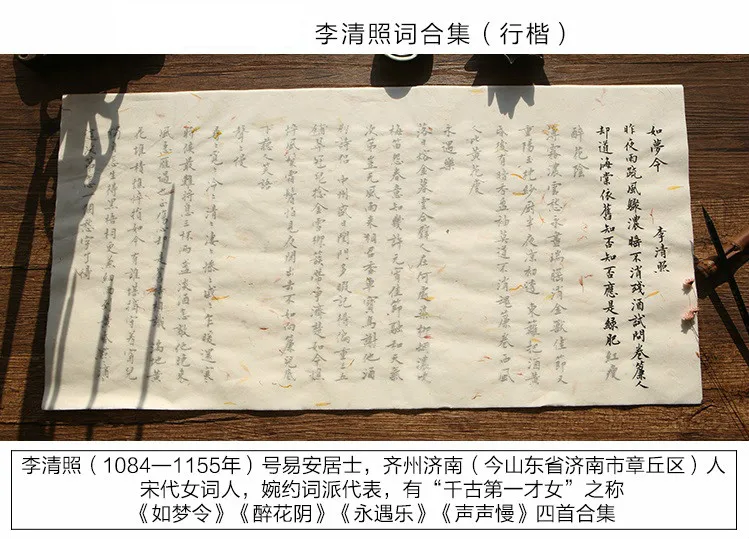 李清照词合集（行楷）
如夢令
李清照
昨夜雨疏風驟濃睡不消殘酒試問卷簾人
却道海棠依舊知否知否應是綠肥紅瘦
醉花陰
薄霧濃雲愁永晝瑞腦消金獸佳節又
重陽玉枕紗厨半夜凉初透東籬把酒黃
昏後有暗香盈袖莫道不消魂簾卷西風
人比黃花瘦
永遇樂
落日熔金暮雲合璧人在何處染柳烟濃吹
梅笛怨春意知幾許元宵佳節融和天氣
次第豈無風雨來相召香車寶馬謝他酒
朋詩侶中州盛日閨門多暇記得偏重三五
鋪翠冠兒撚金雪柳簇帶爭濟楚如今憔
悴風鬟霜鬢怕見夜間出去不如向簾兒底
下聽人笑語
聲聲慢
尋〻覓〻冷〻清〻凄〻慘〻戚〻乍暖還寒
時候最難將息三杯兩盞淡酒怎敵他晚來
風急雁過也正傷心却是舊時相識滿地黃
花堆積憔悴損如今有誰堪摘守着窗兒
怎生得黑梧桐更兼細雨
怎一個愁字了得
李清照（1084—1155年）号易安居士，齐州济南（今山东省济南市章丘区）人
宋代女词人，婉约词派代表，有“千古第一才女”之称
《如梦令》《醉花阴》《永遇乐》《声声慢》四首合集